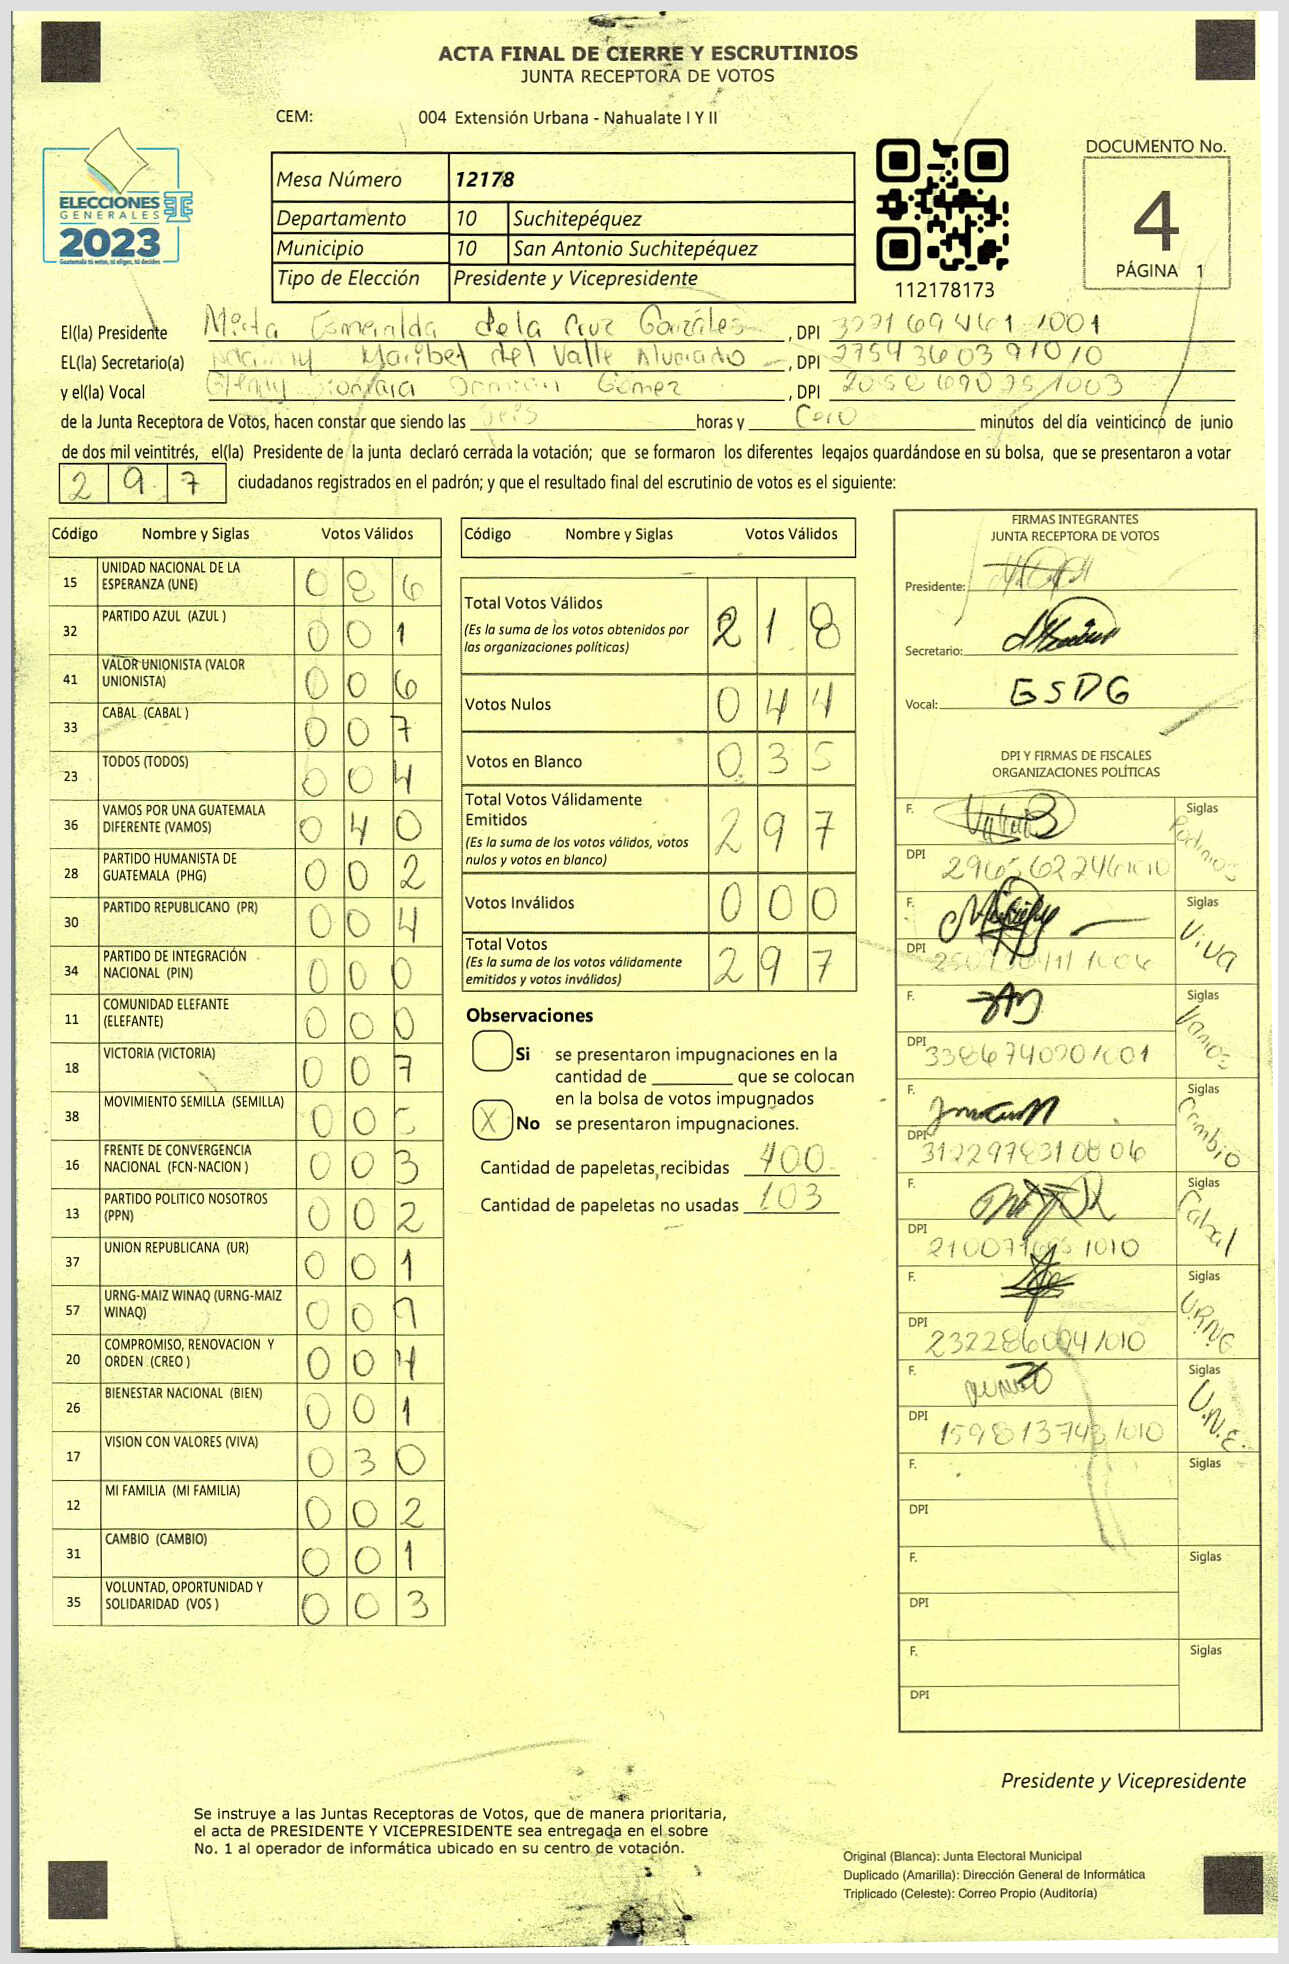 ACTA FINAL DE CIERRE Y ESCRUTINIOS
JUNTA RECEPTORA DE VOTOS
CEM: 004 Extensión Urbana - Nahualate I Y II
ELECCIONES
GENERALES
2023
Guatemala tú votas, tú eliges, tú decides
Mesa Número 12178
Departamento 10 Suchitepéquez
Municipio 10 San Antonio Suchitepéquez
Tipo de Elección Presidente y Vicepresidente
112178173
DOCUMENTO No.
4
PÁGINA 1
El(la) Presidente Mirta Esmeralda de la Cruz Gonzáles, DPI
EL(la) Secretario(a) Maribel del Valle Alvarado, DPI
y el(la) Vocal Gómez, DPI
de la Junta Receptora de Votos, hacen constar que siendo las seis horas y Cero minutos del día veinticinco de junio
de dos mil veintitrés, el(la) Presidente de la junta declaró cerrada la votación; que se formaron los diferentes legajos guardándose en su bolsa, que se presentaron a votar
2 9 7 ciudadanos registrados en el padrón; y que el resultado final del escrutinio de votos es el siguiente:
Código Nombre y Siglas Votos Válidos
15 UNIDAD NACIONAL DE LA ESPERANZA (UNE) 0 8 6
32 PARTIDO AZUL (AZUL ) 0 0 1
41 VALOR UNIONISTA (VALOR UNIONISTA) 0 0 6
33 CABAL (CABAL ) 0 0 7
23 TODOS (TODOS) 0 0 4
36 VAMOS POR UNA GUATEMALA DIFERENTE (VAMOS) 0 4 0
28 PARTIDO HUMANISTA DE GUATEMALA (PHG) 0 0 2
30 PARTIDO REPUBLICANO (PR) 0 0 4
34 PARTIDO DE INTEGRACIÓN NACIONAL (PIN) 0 0 0
11 COMUNIDAD ELEFANTE (ELEFANTE) 0 0 0
18 VICTORIA (VICTORIA) 0 0 7
38 MOVIMIENTO SEMILLA (SEMILLA) 0 0 5
16 FRENTE DE CONVERGENCIA NACIONAL (FCN-NACION ) 0 0 3
13 PARTIDO POLITICO NOSOTROS (PPN) 0 0 2
37 UNION REPUBLICANA (UR) 0 0 1
57 URNG-MAIZ WINAQ (URNG-MAIZ WINAQ) 0 0 9
20 COMPROMISO, RENOVACION Y ORDEN (CREO ) 0 0 4
26 BIENESTAR NACIONAL (BIEN) 0 0 1
17 VISION CON VALORES (VIVA) 0 3 0
12 MI FAMILIA (MI FAMILIA) 0 0 2
31 CAMBIO (CAMBIO) 0 0 1
35 VOLUNTAD, OPORTUNIDAD Y SOLIDARIDAD (VOS ) 0 0 3
Código Nombre y Siglas Votos Válidos
Total Votos Válidos 2 1 8
(Es la suma de los votos obtenidos por
las organizaciones políticas)
Votos Nulos 0 4 4
Votos en Blanco 0 3 5
Total Votos Válidamente
Emitidos 2 9 7
(Es la suma de los votos válidos, votos
nulos y votos en blanco)
Votos Inválidos 0 0 0
Total Votos 2 9 7
(Es la suma de los votos válidamente
emitidos y votos inválidos)
Observaciones
Si se presentaron impugnaciones en la
cantidad de ________ que se colocan
en la bolsa de votos impugnados
X No se presentaron impugnaciones.
Cantidad de papeletas recibidas 400
Cantidad de papeletas no usadas 103
FIRMAS INTEGRANTES
JUNTA RECEPTORA DE VOTOS
Presidente:
Secretario:
Vocal: GSDG
DPI Y FIRMAS DE FISCALES
ORGANIZACIONES POLÍTICAS
F. Siglas Podemos
DPI
F. Siglas VIVA
DPI
F. Siglas Vamos
DPI
F. Siglas Cambio
DPI
F. Siglas Cabal
DPI
F. Siglas U.R.N.G
DPI
F. Siglas U.N.E.
DPI
F. Siglas
DPI
F. Siglas
DPI
F. Siglas
DPI
Presidente y Vicepresidente
Se instruye a las Juntas Receptoras de Votos, que de manera prioritaria,
el acta de PRESIDENTE Y VICEPRESIDENTE sea entregada en el sobre
No. 1 al operador de informática ubicado en su centro de votación.
Original (Blanca): Junta Electoral Municipal
Duplicado (Amarilla): Dirección General de Informática
Triplicado (Celeste): Correo Propio (Auditoría)